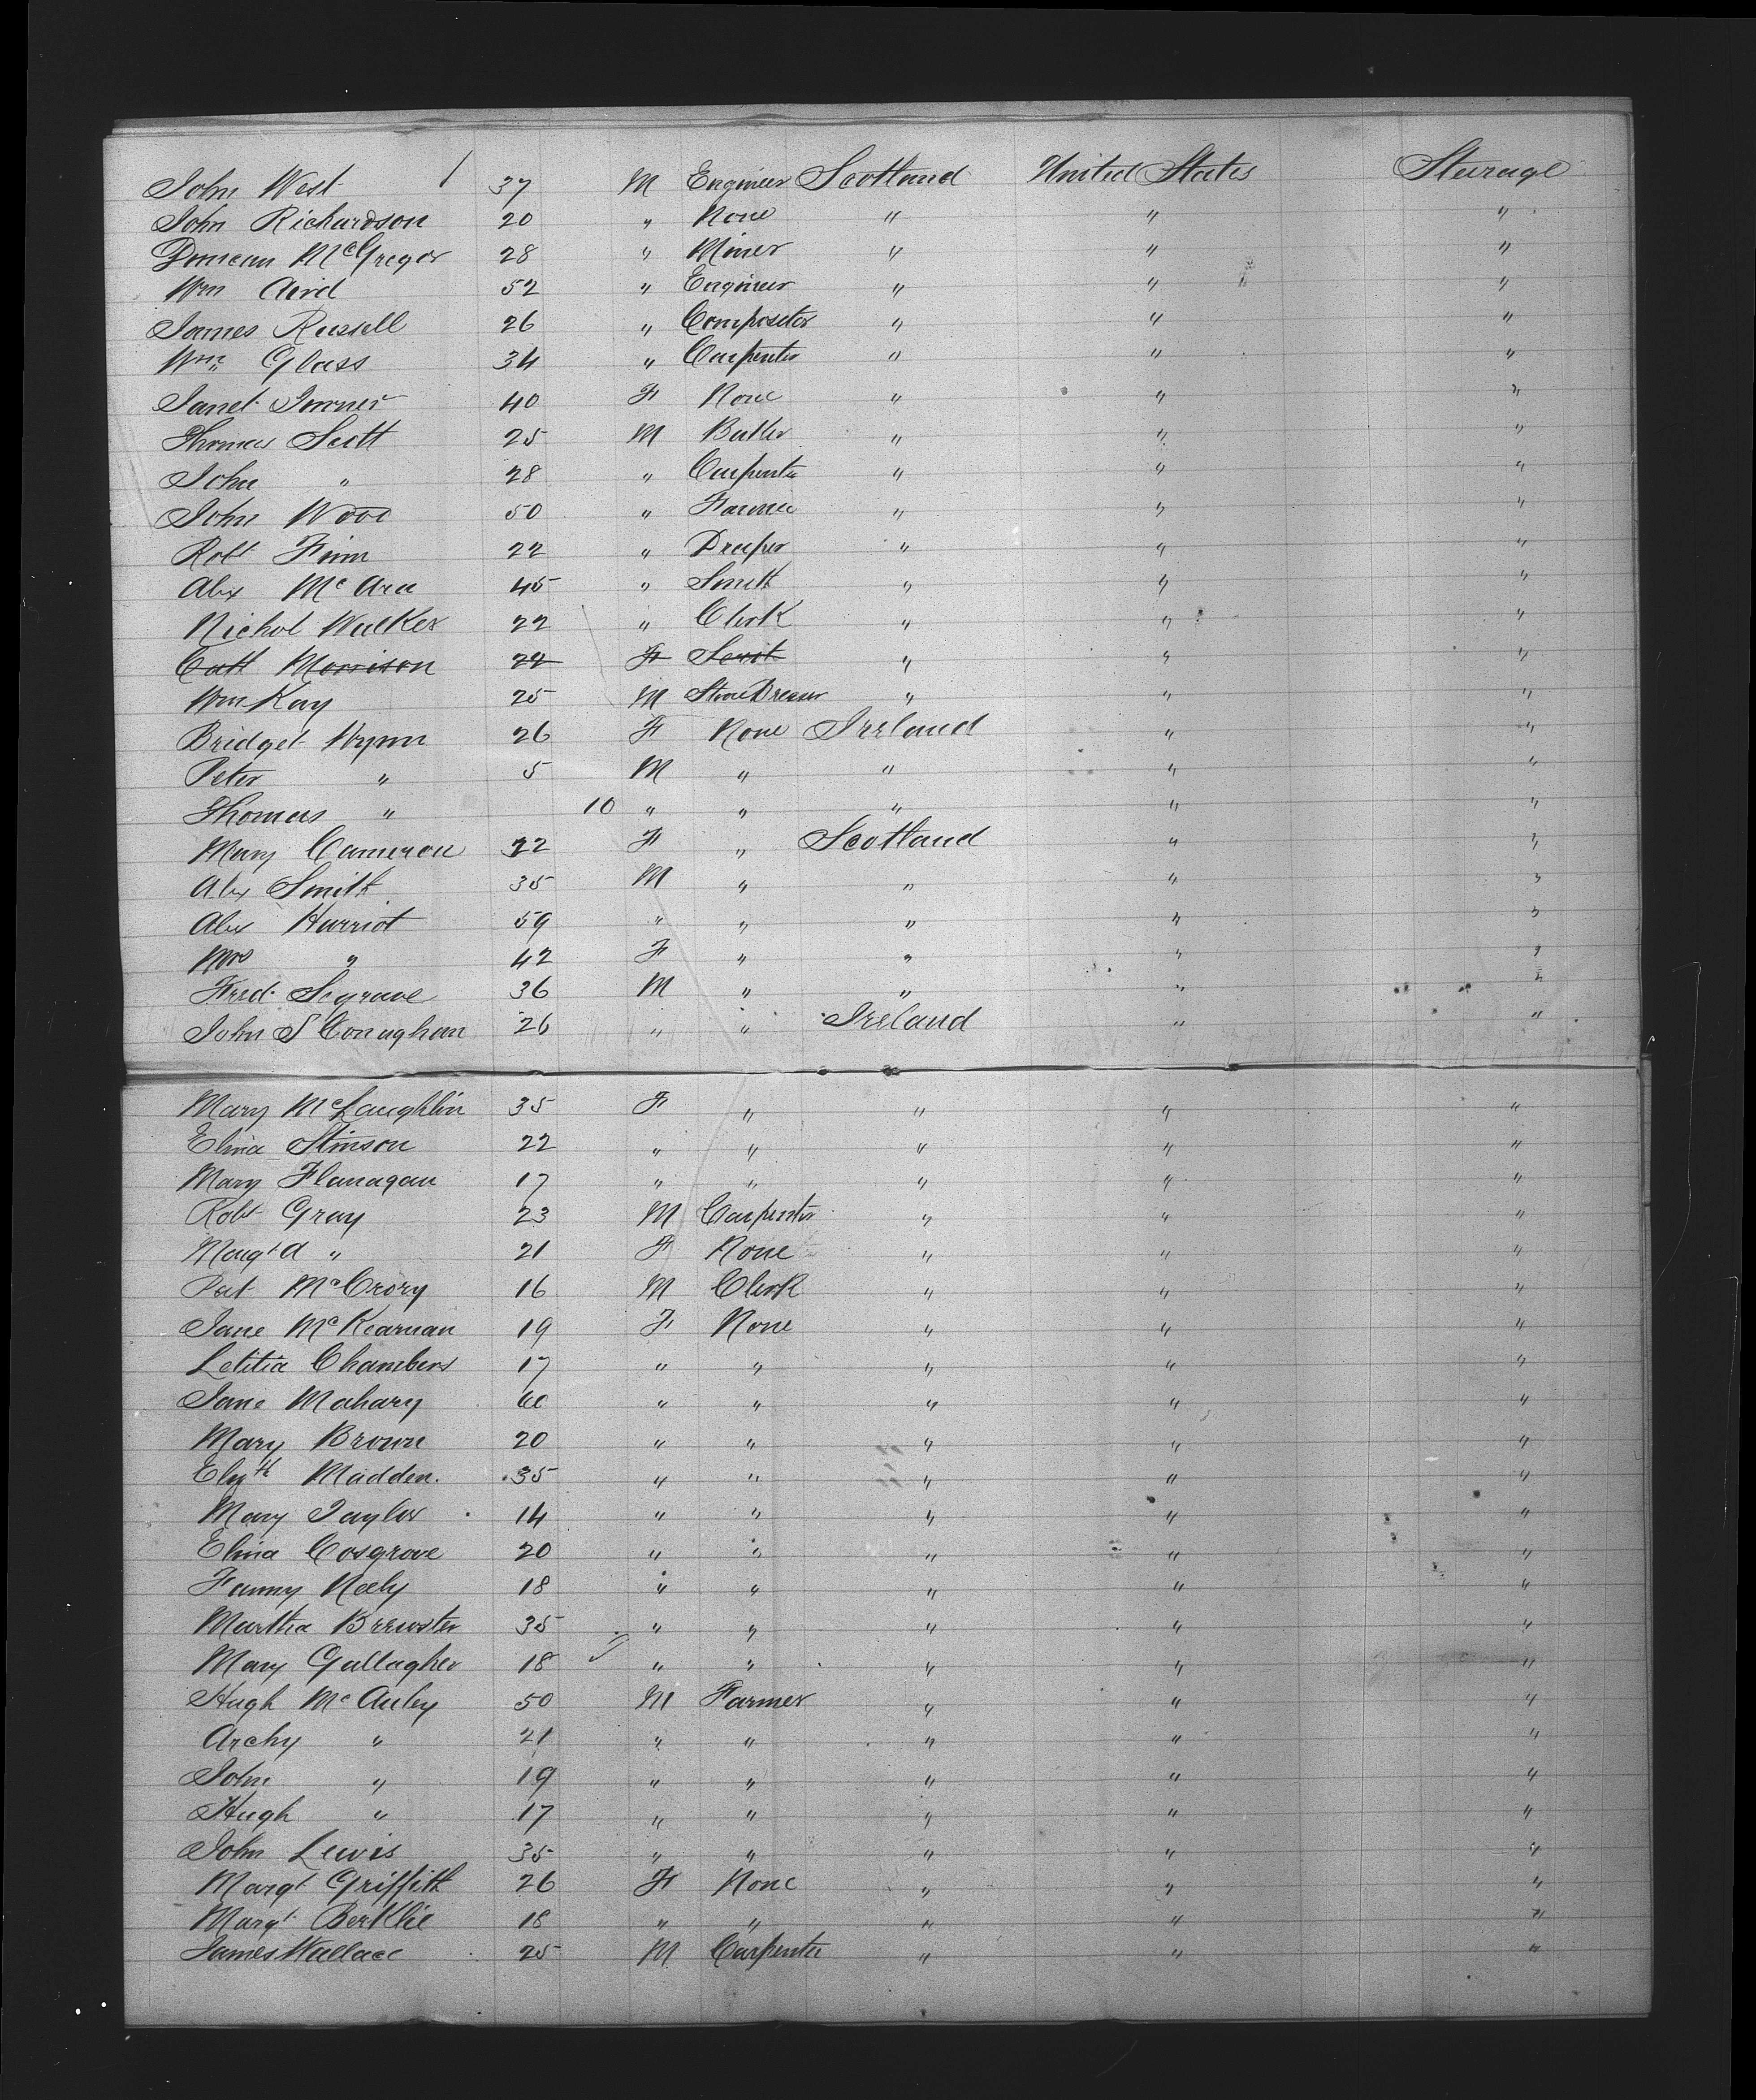 John West 37 M Engineer Scotland United States Steerage
John Richardson 20 " None " " "
Duncan McGregor 28 " Miner " " "
Wm Aird 52 " Engineer " " "
James Russell 26 " Compositor " " "
Wm Glass 34 " Carpenter " " "
Janet 40 F None " " "
Thomas Scott 25 M Butler " " "
John " 28 " Carpenter " " "
John Wood 50 " Farmer " " "
Robt Finn 22 " Draper " " "
Alex McAra 45 " Smith " " "
Nichol Walker 22 " Clerk " " "
Cath Morrison 22 F Servt " " "
Wm Kay 25 M Stone Dresser " " "
Bridget Wynn 26 F None Ireland " "
Peter " 5 M " " " "
Thomas " 10 " " " " "
Mary Cameron 22 F " Scotland " "
Alex Smith 35 M " " " "
Alex Harriot 59 " " " " "
Mrs " 42 F " " " "
Fred. Segrave 36 M " " " "
John S Conaghan 26 " " Ireland " "
Mary McLaughlin 35 F " " " "
Eliza Stinson 22 " " " " "
Mary Flanagan 17 " " " " "
Robt Gray 23 M Carpenter " " "
Magt A " 21 F None " " "
Pat McCrory 16 M Clerk " " "
Jane McKearnan 19 F None " " "
Letitia Chambers 17 " " " " "
Jane Mahary " " " " "
Mary Brown 20 " " " " "
Elizth Madden. 35 " " " " "
Mary Taylor 14 " " " " "
Eliza Cosgrove 20 " " " " "
Fanny Neely 18 " " " " "
Martha Brewster 35 " " " " "
Mary Gallagher 18 " " " " "
Hugh McAuley 50 M Farmer " " "
Archy " 21 " " " " "
John " 19 " " " " "
Hugh " 17 " " " " "
John Lewis 35 " " " " "
Margt Griffith 26 F None " " "
Margt Berklie 18 " " " " "
James Wallace 25 M Carpenter " " "